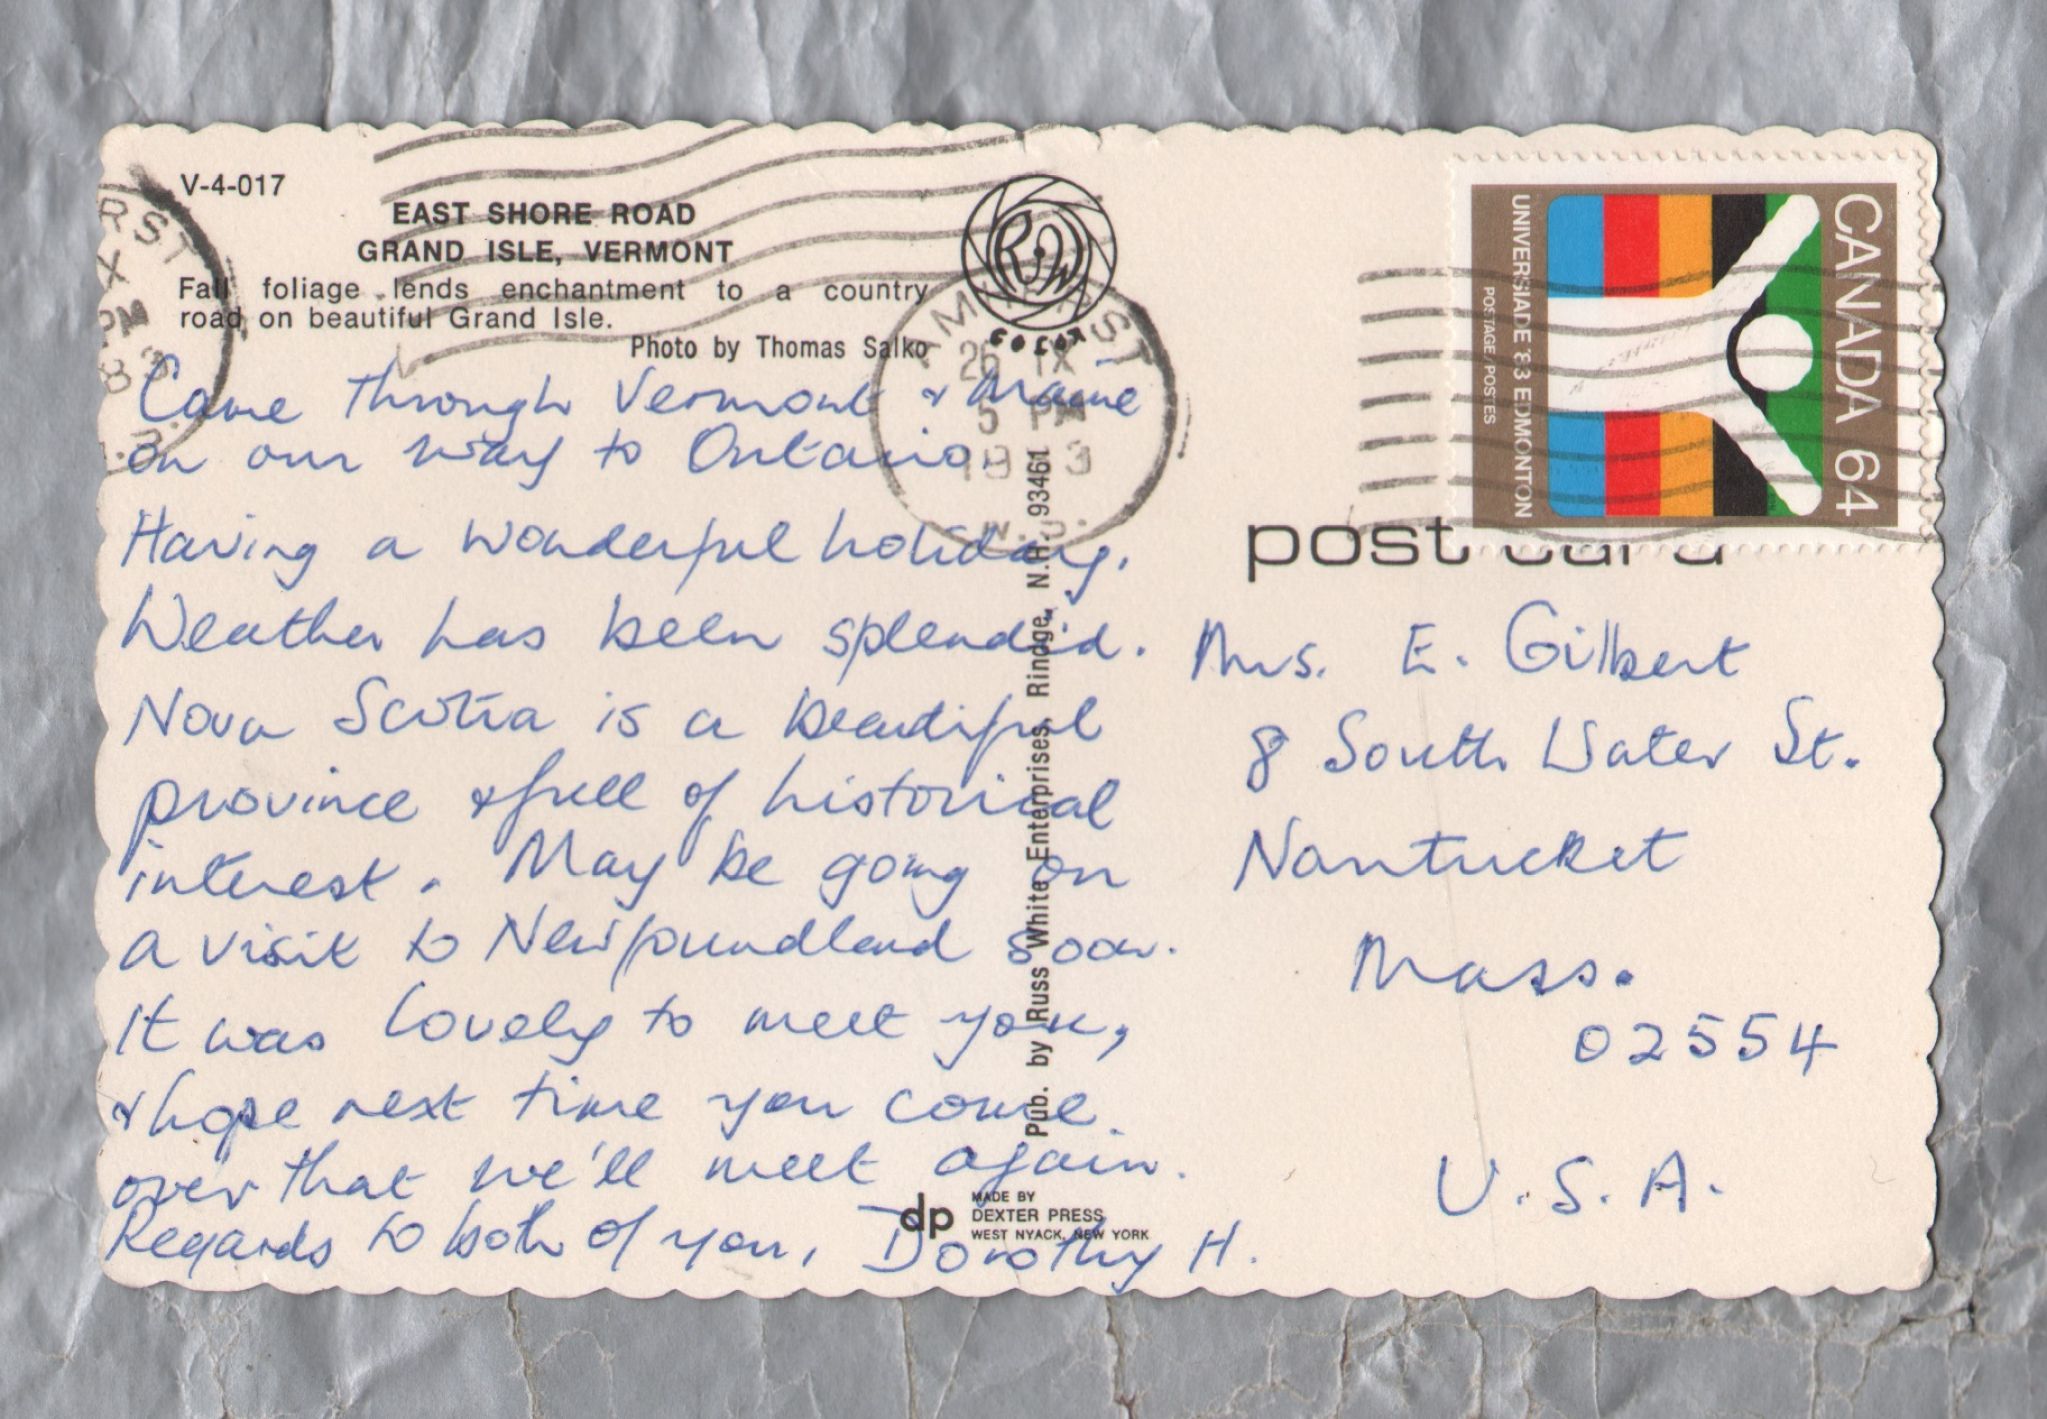 V-4-017
EAST SHORE ROAD
GRAND ISLE, VERMONT
Fall foliage lends enchantment to a country
road on beautiful Grand Isle.
Photo by Thomas Salko
Came through Vermont & Maine
on our way to Ontario.
Having a wonderful holiday.
Weather has been splendid.
Nova Scotia is a beautiful
province & full of historical
interest. May be going on
a visit to Newfoundland soon.
It was lovely to meet you,
& hope next time you come
over that we'll meet again.
Regards to both of you, Dorothy H.
RST
X
PM
83
RW
COLOR
AMHERST
26 IX
5 PM
19 3
N.S.
Pub. by Russ White Enterprises, Rindge, N.H. 93461
dp
MADE BY
DEXTER PRESS
WEST NYACK, NEW YORK
CANADA 64
UNIVERSIADE '83 EDMONTON
POSTAGE/POSTES
post card
Mrs. E. Gilbert
8 South Water St.
Nantucket
Mass.
02554
U.S.A.